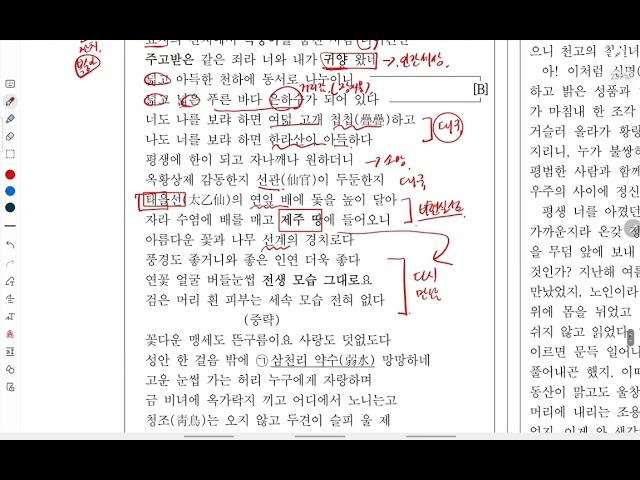 주고받은 같은 죄라 너와 내가 귀양 왔네 → 인간세상
넓고 아득한 천하에 동서로 나누이니
넓고 넓은 푸른 바다 은하수가 되어 있다
[B]
너도 나를 보랴 하면 여덟 고개 첩첩(疊疊)하고
나도 너를 보랴 하면 한라산이 아득하다
대구
평생에 한이 되고 자나깨나 원하더니 → 소망
옥황상제 감동한지 선관(仙官)이 두둔한지 대구
태을선(太乙仙)의 연잎 배에 돛을 높이 달아
자라 수염에 배를 매고 제주 땅에 들어오니
아름다운 꽃과 나무 선계의 경치로다
풍경도 좋거니와 좋은 인연 더욱 좋다
연꽃 얼굴 버들눈썹 전생 모습 그대로요
검은 머리 흰 피부는 세속 모습 전혀 없다
다시
만남
(중략)
꽃다운 맹세도 뜬구름이요 사랑도 덧없도다
성안 한 걸음 밖에 ㉠ 삼천리 약수(弱水) 망망하네
고운 눈썹 가는 허리 누구에게 자랑하며
금 비녀에 옥가락지 끼고 어디에서 노니는고
청조(靑鳥)는 오지 않고 두견이 슬피 울 제
으니 천고의
아! 이처럼 신명(
하고 밝은 성품과
가 마침내 한 조각
거슬러 올라가 황량
지리니, 누가 불쌍히
평범한 사람과 함께
우주의 사이에 정신
평생 너를 아꼈던
가까운지라 온갖 정
을 무덤 앞에 보내
것인가? 지난해 여름
만났었지. 노인이라
위에 몸을 뉘었고
쉬지 않고 읽었다.
이르면 문득 일어나
풀어내곤 했지. 이따
동산이 맑고도 울창
머리에 내리는 조용